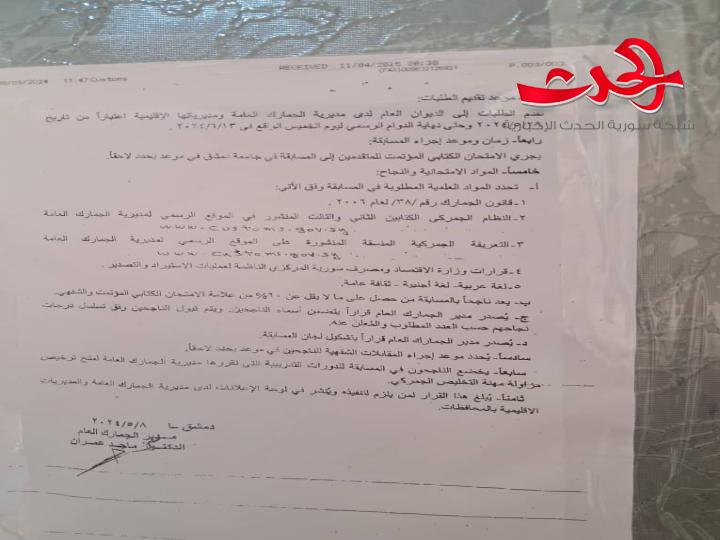 RECEIVED 11/04/2015 20:38
P.003/003
11:47 Customs
الحدث
شبكة سورية الحدث الإخبارية
موعد تقديم الطلبات:
تقدم الطلبات إلى الديوان العام لدى مديرية الجمارك العامة ومديرياتها الإقليمية اعتباراً من تاريخ
وحتى نهاية الدوام الرسمي ليوم الخميس الواقع في ٢٠٢٤/٦/١٣ .
رابعاً- زمان وموعد إجراء المسابقة:
يجري الامتحان الكتابي المؤتمت للمتقدمين إلى المسابقة في جامعة دمشق في موعد يحدد لاحقاً.
خامساً- المواد الامتحانية والنجاح:
أ- تحدد المواد العلمية المطلوبة في المسابقة وفق الآتي:
١-قانون الجمارك رقم /٣٨/ لعام ٢٠٠٦ .
٢-النظام الجمركي الكتابين الثاني والثالث المنشور في الموقع الرسمي لمديرية الجمارك العامة
www.customs.gov.sy
٣-التعريفة الجمركية المنسقة المنشورة على الموقع الرسمي لمديرية الجمارك العامة
www.customs.gov.sy
٤-قرارات وزارة الاقتصاد ومصرف سورية المركزي الناظمة لعمليات الاستيراد والتصدير .
٥-لغة عربية- لغة أجنبية - ثقافة عامة.
ب- يعد ناجحاً بالمسابقة من حصل على ما لا يقل عن ٦٠% من علامة الامتحان الكتابي المؤتمت والشفهي.
ج- يُصدر مدير الجمارك العام قراراً يتضمن أسماء الناجحين، ويتم قبول الناجحين وفق تسلسل درجات
نجاحهم حسب العدد المطلوب والمعلن عنه.
د- يُصدر مدير الجمارك العام قراراً بتشكيل لجان المسابقة.
سادساً- يُحدد موعد إجراء المقابلات الشفهية للناجحين في موعد يحدد لاحقاً.
سابعاً- يخضع الناجحون في المسابقة للدورات التدريبية التي تقررها مديرية الجمارك العامة لمنح ترخيص
مزاولة مهنة التخليص الجمركي.
ثامناً- يُبلغ هذا القرار لمن يلزم لتنفيذه ويُنشر في لوحة الإعلانات لدى مديرية الجمارك العامة والمديريات
الاقليمية بالمحافظات.
دمشق في ٢٠٢٤/٥/٨
مدير الجمارك العام
الدكتور ماجد عمران